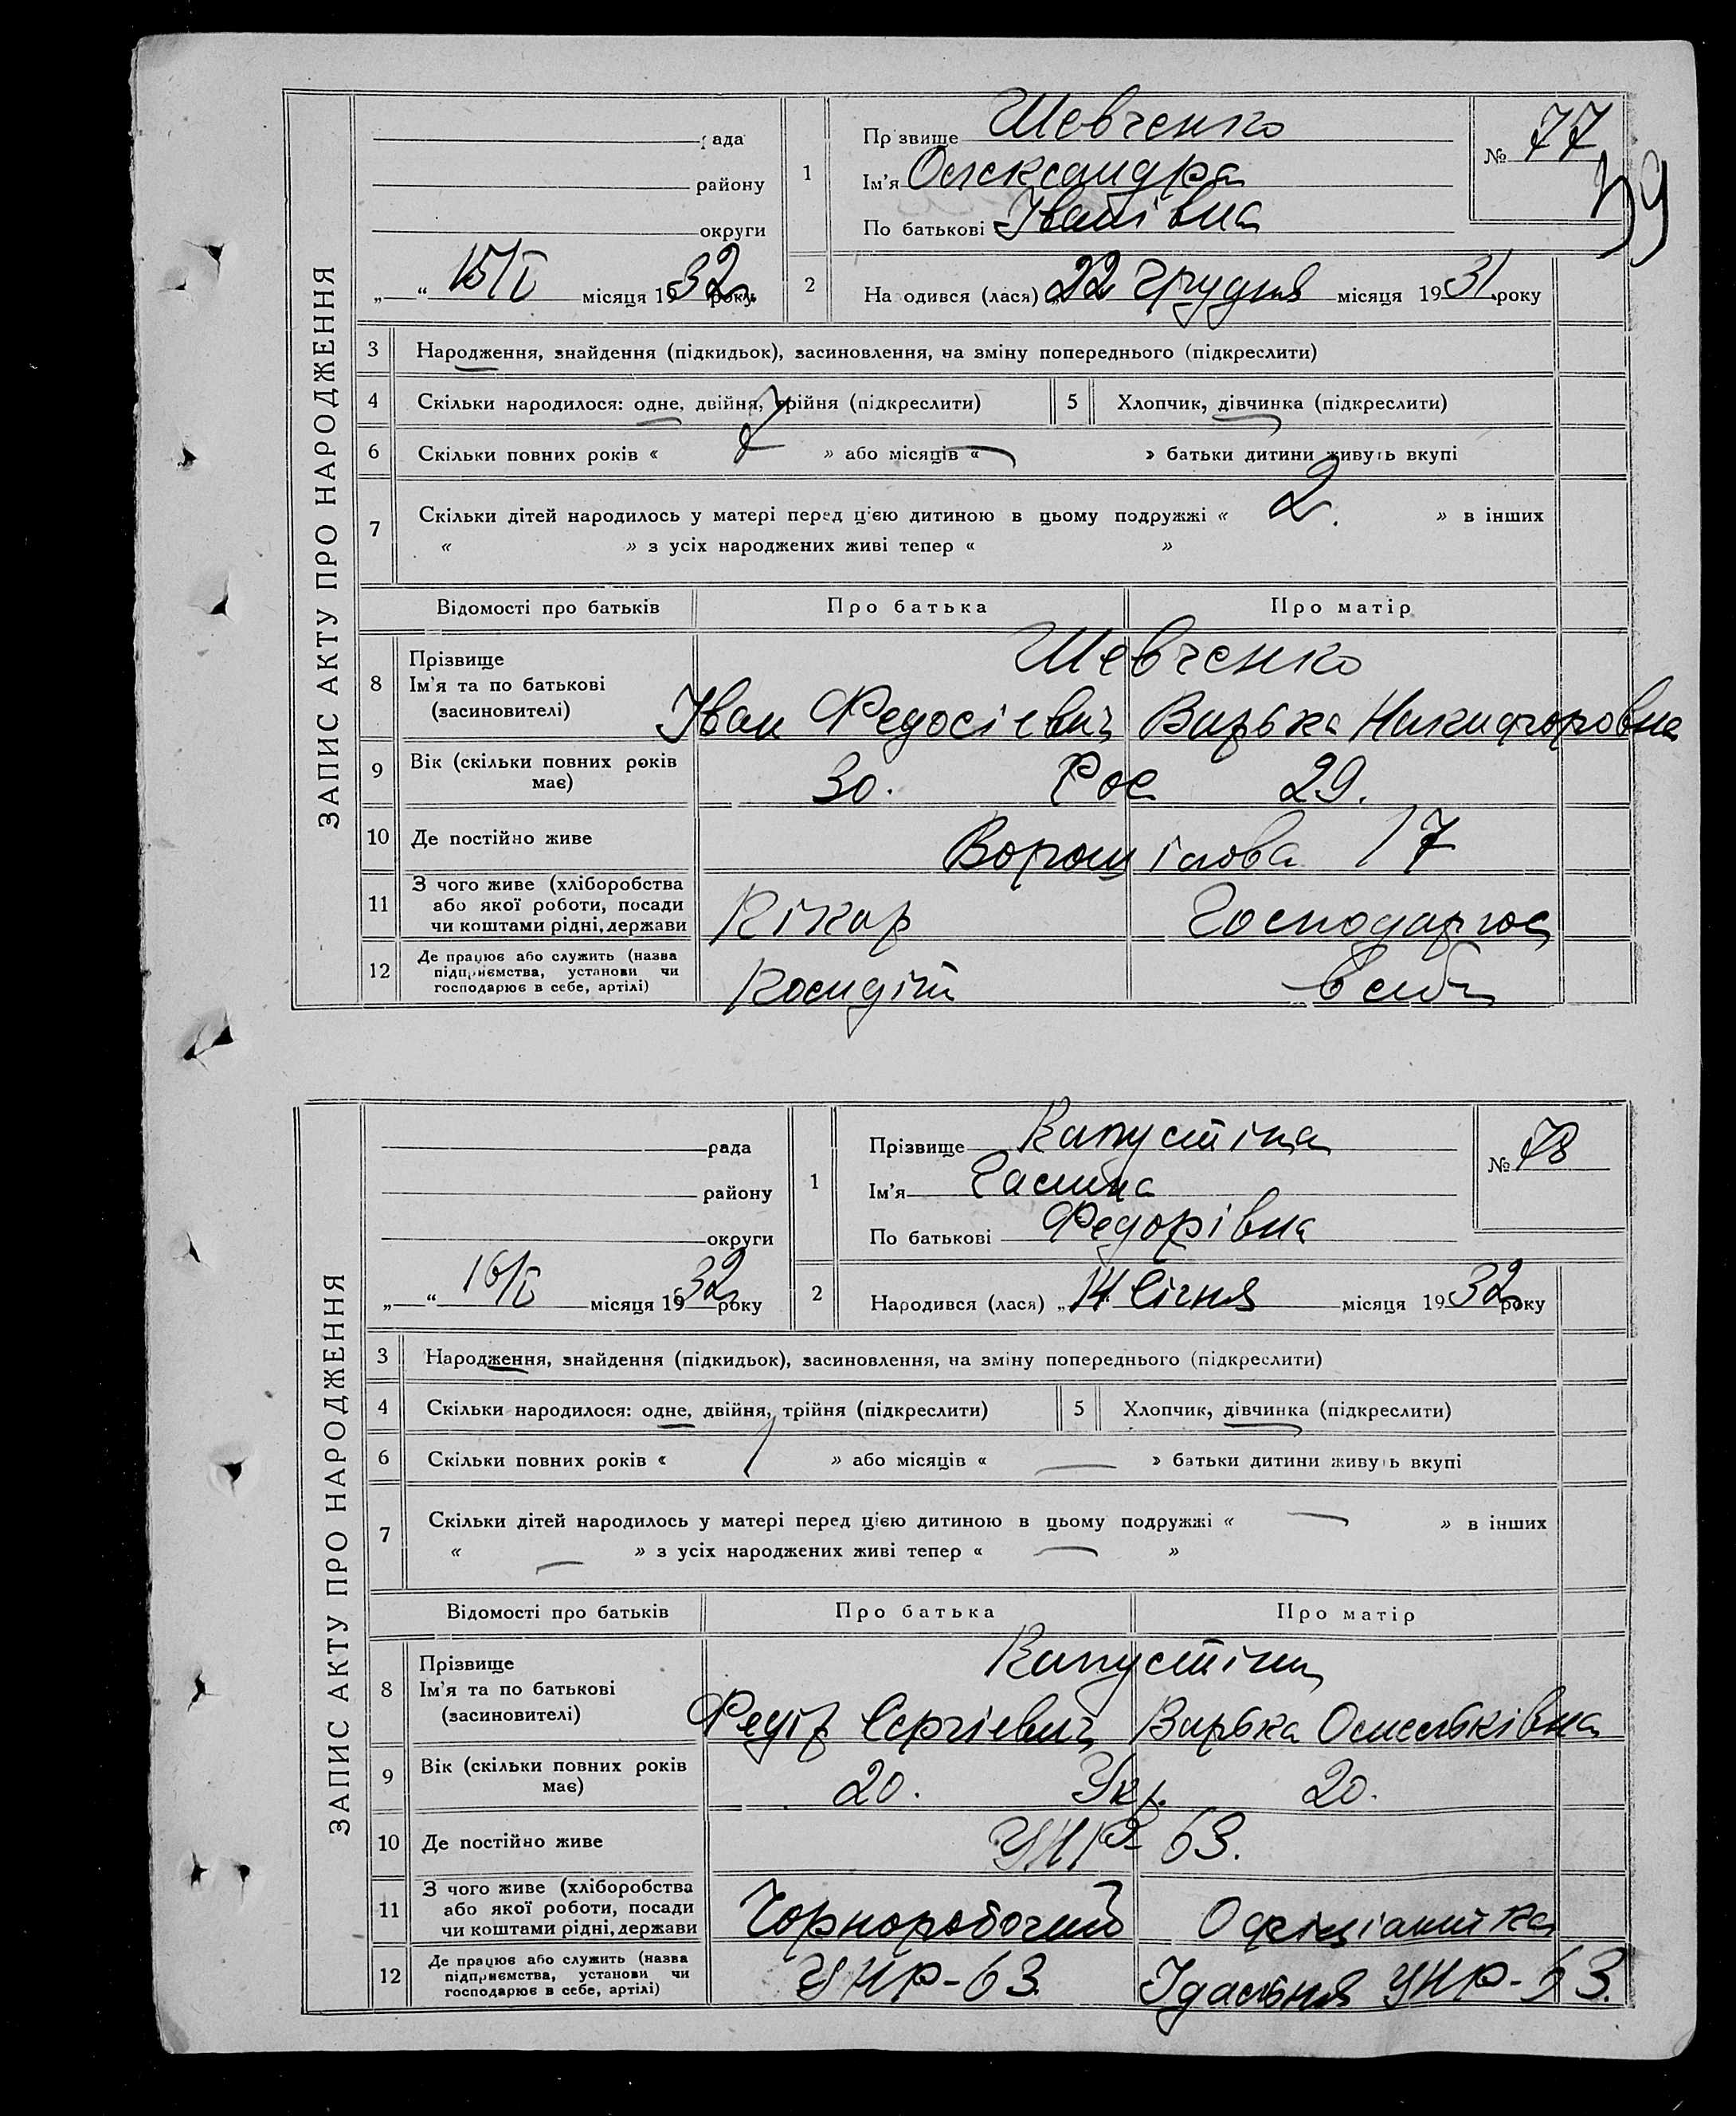 ЗАПИС АКТУ ПРО НАРОДЖЕННЯ
рада
району
округи
„ “ 15/I місяця 1932 року
1
Прізвище Шевченко
Ім'я Олександра
По батькові Іванівна
№ 77
39
2 На одився (лася) „22 грудня місяця 1931 року
3 Народження, знайдення (підкидьок), засиновлення, на зміну попереднього (підкреслити)
4 Скільки народилося: одне, двійня, трійня (підкреслити) 5 Хлопчик, дівчинка (підкреслити)
6 Скільки повних років « 7 » або місяців « — » батьки дитини живуть вкупі
7 Скільки дітей народилось у матері перед цією дитиною в цьому подружжі « 2. » в інших
« » з усіх народжених живі тепер « »
Відомості про батьків Про батька Про матір
8 Прізвище
Ім'я та по батькові
(засновителі)
Шевченко
Іван Федосієвич Варька Никифоровна
9 Вік (скільки повних років має) 30. Рос 29.
10 Де постійно живе Ворошілова 17
11 З чого живе (хліборобства
або якої роботи, посади
чи коштами рідні, держави
Господарює
12 Де працює або служить (назва
підприємства, установи чи
господарює в себе, артілі)
в себе
ЗАПИС АКТУ ПРО НАРОДЖЕННЯ
рада
району
округи
„ “ 16/I місяця 1932 року
1
Прізвище Капустіна
Ім'я Галина
По батькові Федорівна
№ 78
2 Народився (лася) „14 Січня місяця 1932 року
3 Народження, знайдення (підкидьок), засиновлення, на зміну попереднього (підкреслити)
4 Скільки народилося: одне, двійня, трійня (підкреслити) 5 Хлопчик, дівчинка (підкреслити)
6 Скільки повних років « 1 » або місяців « — » батьки дитини живуть вкупі
7 Скільки дітей народилось у матері перед цією дитиною в цьому подружжі « — » в інших
« — » з усіх народжених живі тепер « — »
Відомості про батьків Про батька Про матір
8 Прізвище
Ім'я та по батькові
(засиновителі)
Капустіни
Федір Сергієвич Варька Омельківна
9 Вік (скільки повних років має) 20. Укр. 20.
10 Де постійно живе УНР-63.
11 З чого живе (хліборобства
або якої роботи, посади
чи коштами рідні, держави
Чорноробочий Офіціантка
12 Де працює або служить (назва
підприємства, установи чи
господарює в себе, артілі)
УНР-63 Їдальня УНР-63.